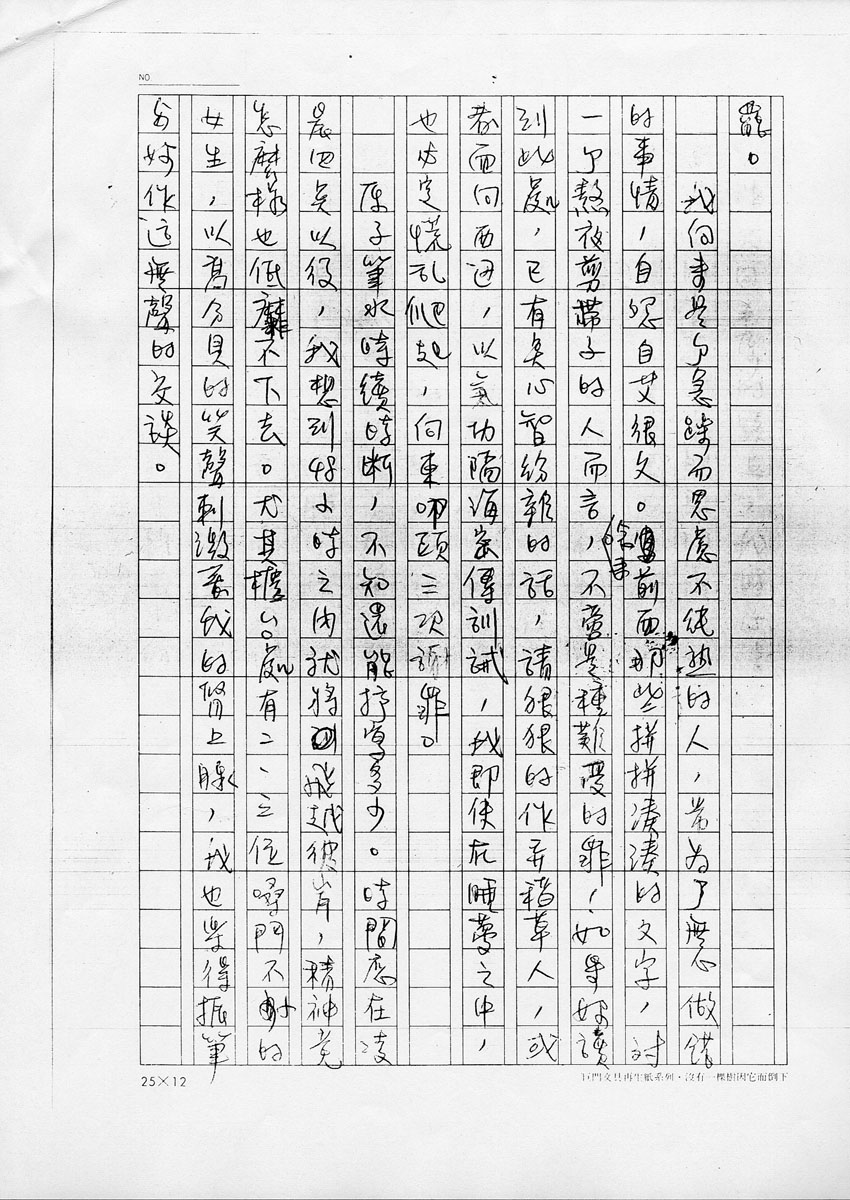 NO
罷。
我向來是個急躁而思慮不純熟的人,常為了無心做錯
的事情,自怨自艾很久。寫前面那些拼拼湊湊的文字,對
一個熬夜剪帶子的人而言,不啻是種難受的罪!如學妹讀
到此處,已有矣心智紛雜的話,請狠狠的作弄稻草人,或
者面向西邊,以氣功隔海密傳訓誡,我即使在睡夢之中,
也必定慌亂爬起,向東叩頭三次謝罪。
原子筆水時續時斷,不知還能抒寫多少。時間應在凌
晨四點以後,我想到48小時之內就將飛越彼岸,精神竟
怎麼樣也低靡不下去。尤其樓下處有二、三位嗓門不小的
女生,以高分貝的笑聲刺激著我的腎上腺,我也樂得振筆
與妳作這無聲的交談。
25×12
巨門文具再生紙系列・沒有一棵樹因它而倒下